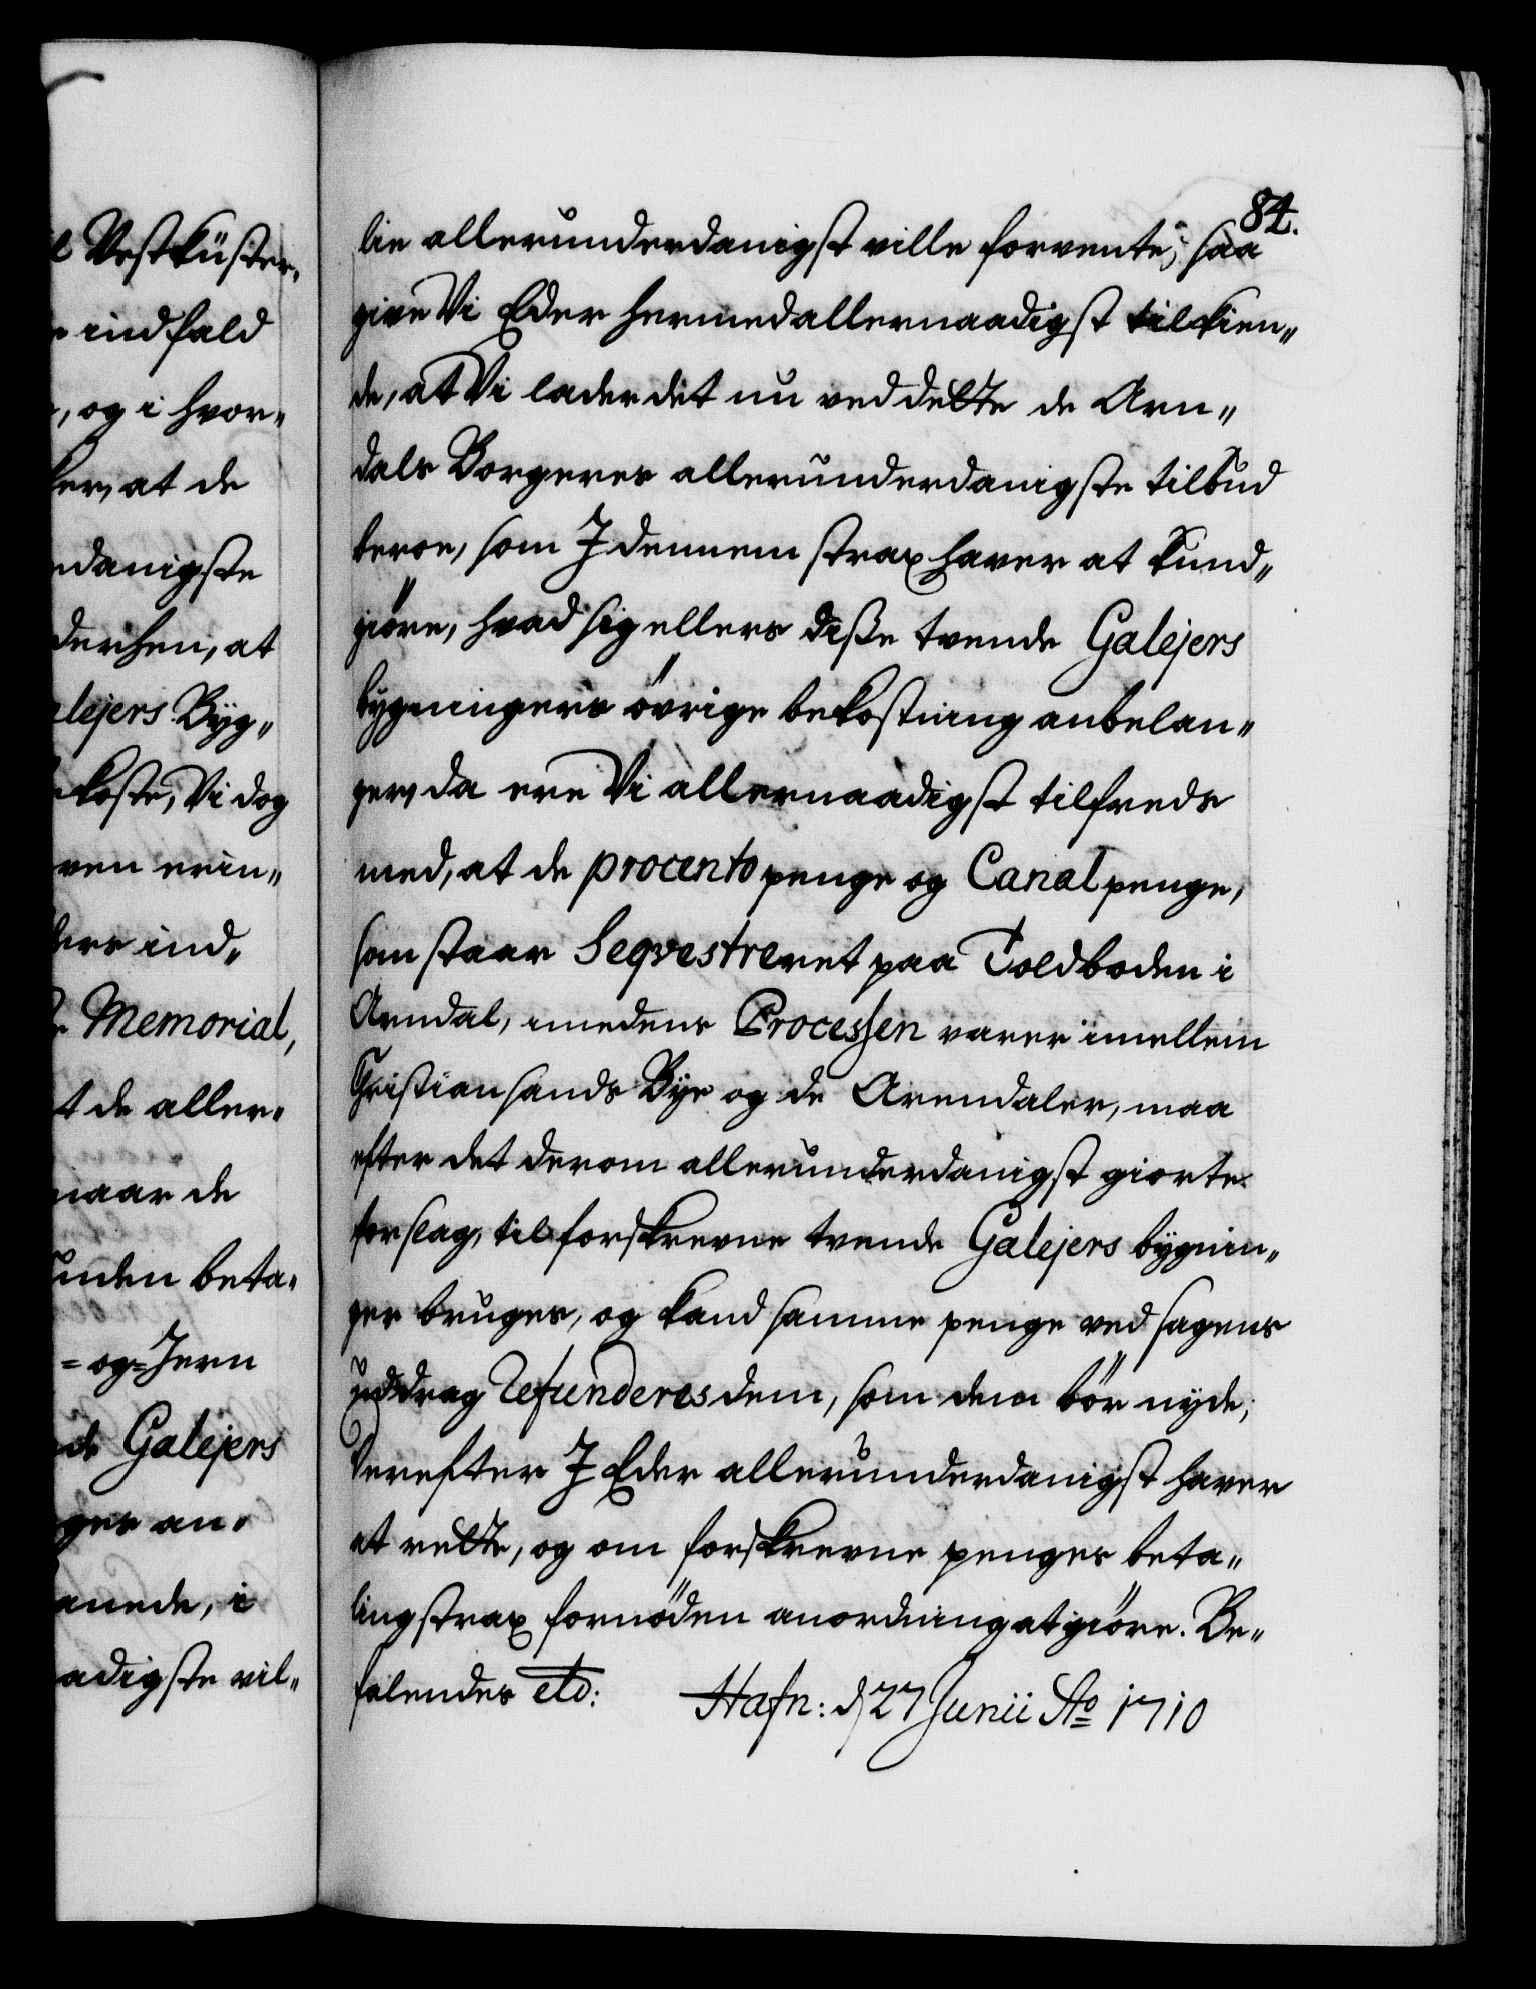 l Vestküster,
e indfald
, og i hvor„
ker, at de
rdanigste
derhen, at
alejers Byg„
koste, Vi dog
ven erin„
ders ind„
r Memorial,
t de aller„
naar de
unden beta„
= og Jern
de Galejers
ger an„
anede, i
adigste vil„
84.
lie allerunderdanigst ville forvente; saa
give Vi Eder hermed allernaadigst tilkien„
de, at Vi lader det nu ved dette de Aren„
dals Borgeres allerunderdanigste tilbud
beroe, som I dennem strax haver at kund„
giöre, hvad sig ellers disse tvende Galejers
bygningers övrige bekostning anbelan„
ger, da ere Vi allernaadigst tilfreds
med, at de procento penge og Canal penge,
som staar Seqvestreret paa Toldboden i
Arndal, imedens Processen varer imellem
Christiansands Bye og de Arendaler, maa
efter det derom allerunderdanigst giorte
forslag, til forskrevne tvende Galejers bygnin„
ger bruges, og kand samme penge ved sagens
uddrag Refunderes dem, som dem bör nyde;
Derefter I Eder allerunderdanigst haver
at rette, og om forskrevne penges beta„
ling strax fornöden anordning at giöre. Be„
falendes etc: Hafn: d 27 Junii Ao 1710